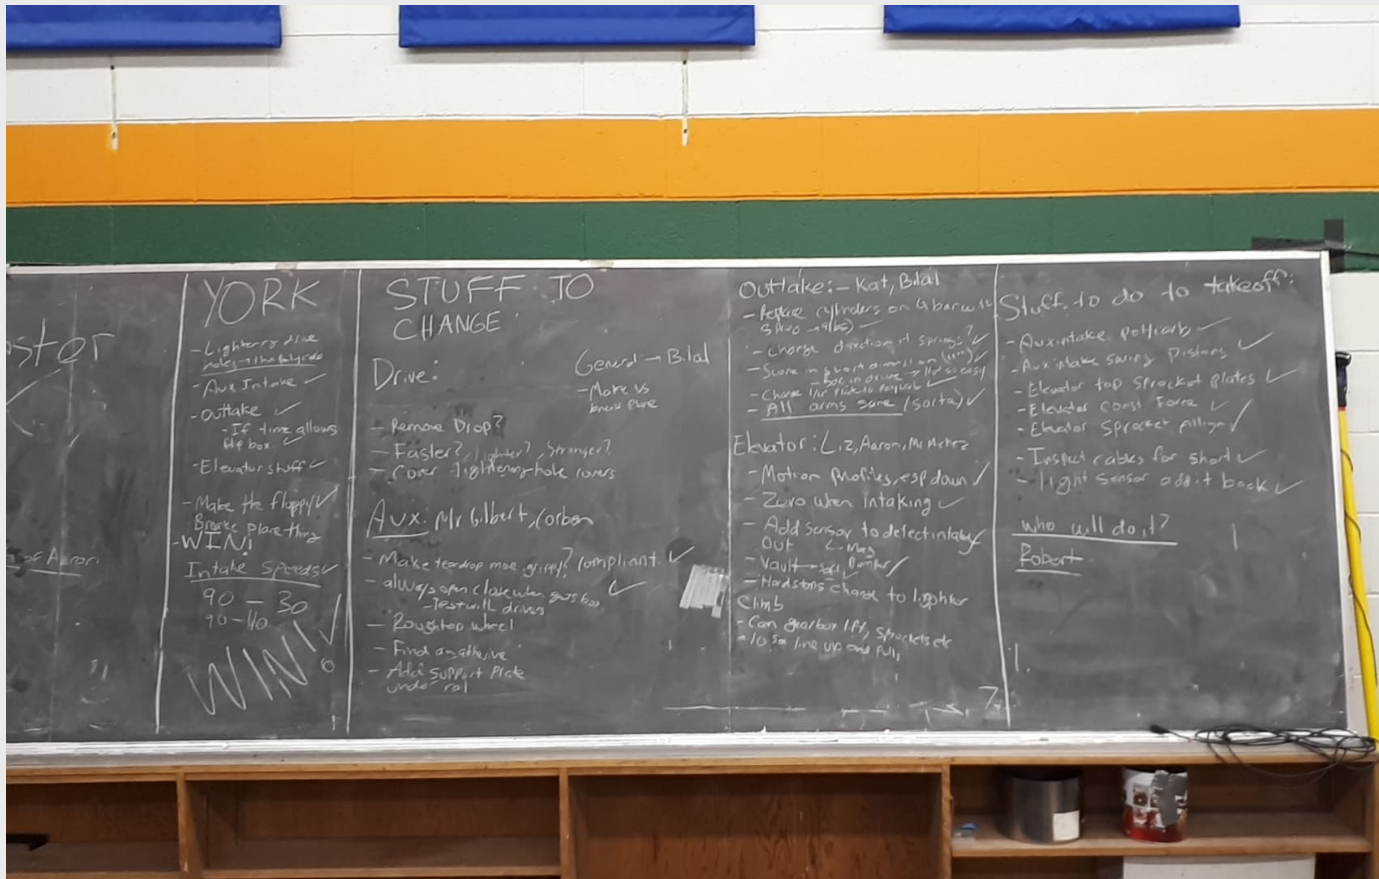 ster
of Aaron
YORK
- Lightening drive
holes
- Aux Intake ✓
- Outtake ✓
- If time allows
flip box ✓
- Elevator stuff ✓
- Make the floppy ✓
Brake plane thing
- WIN!
Intake Speeds ✓
90 - 30
90 - 40
WIN!
STUFF TO
CHANGE
Drive:
- Remove Drop?
- Faster?, lighter?, Stronger?
- Cover lightening hole covers
General → Bilal
- Make vs
break plane
Aux: Mr Gilbert, Corben
- Make teardrop more grippy? compliant ✓
- always open close when ✓
- Test with drivers
- Roughtop wheel
- Find an adhesive
- Add support plate
under rail
Outtake: - Kat, Bilal
- Replace cylinders on 4 bar with
- Change direction of springs? ✓
- Score in short dimension
- Change plate to
- All arms same (sorta) ✓
Elevator: Liz, Aaron, Mr Mehrez
- Motion profiles, esp down ✓
- Zero when Intaking ✓
- Add sensor to detect intake
Out
- Vault →
- Hardstops change to lighter
Climb
- Can gearbox lift, sprockets etc
- line up and pull,
Stuff to do to takeoff:
- Aux intake polycarb ✓
- Aux intake swing Pistons ✓
- Elevator top sprocket plates ✓
- Elevator const Force ✓
- Elevator Sprocket Allign ✓
- Inspect cables for short ✓
- light sensor add it back ✓
who will do it?
Robert